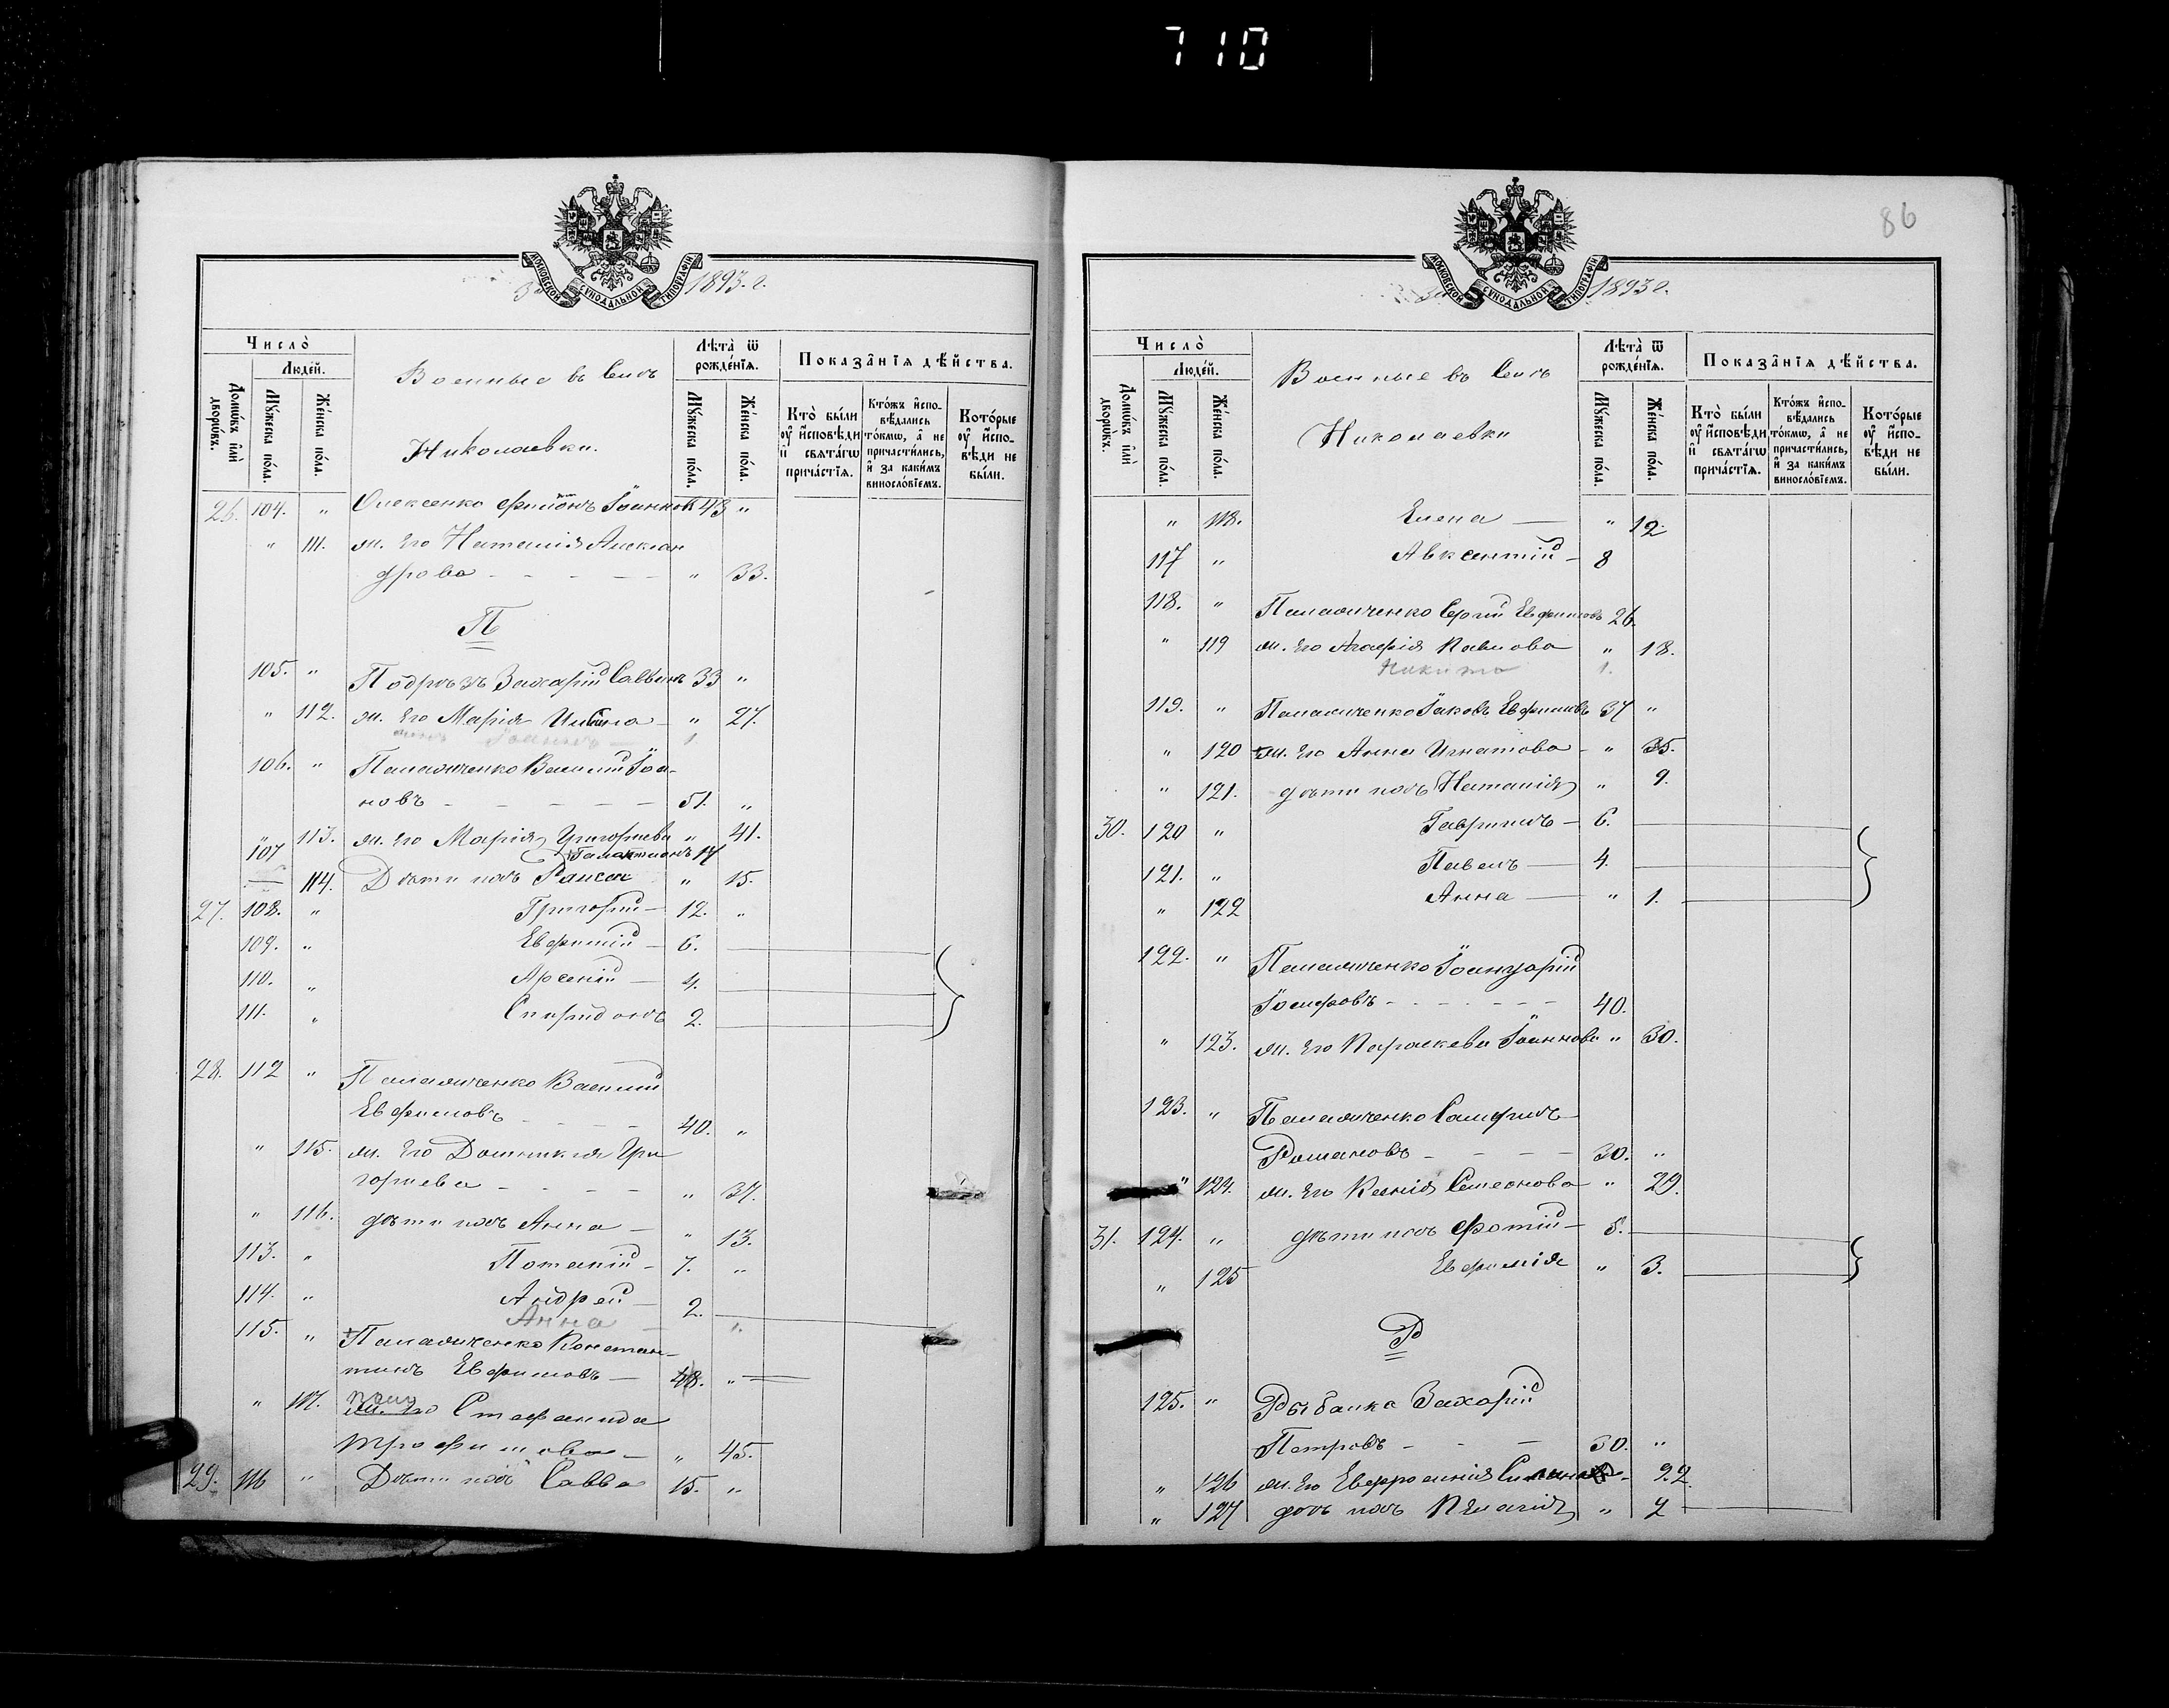 710
МОСКОВСКОЙ СѴНОДАЛЬНОЙ ТИПОГРАФІИ
За 1893. г.
Число̀
Людей.
Домѡ́въ и҆лѝ дворѡ́въ.
Мꙋ́жеска по́ла.
Же́нска по́ла.
Военные въ Селѣ
Николаевки.
Лѣта̀ ѿ рожде́нїѧ.
Мꙋ́жеска по́ла.
Же́нска по́ла.
Показа̑нїѧ дѣ́йства.
Кто̀ бы́ли ᲂу҆ и҆сповѣ́ди и҆ свѧта́гѡ прича́стїѧ.
Кто́жъ и҆сповѣ́дались то́кмѡ, а҆ не причасти́лись, и҆ за каки́мъ виносло́вїемъ.
Кото́рые ᲂу҆ и҆сповѣ́ди не бы́ли.
26. 104. " Олексенко Филонъ Іоанновъ 43 "
" 111. ж. его Наталія Алексан
дрова - - - - - " 33.
П
105. " Подрѣзъ Захарій Саввинъ 33 "
" 112. ж. его Марія - " 27.
Іоаннъ 1
106. " Паламиченко Василій Іоа-
новъ - - - - - - 51. "
" 113. ж. его Марія Григорьева " 41.
107 Галактіонъ 17
114. Дѣти ихъ Раиса " 15.
27. 108. " Григорій - 12. "
109. " Евфимій - 6.
110. " Арсеній - 4.
111. " Спиридонъ 2.
28. 112 " Паламиченко Василій
Евфимовъ - - - - 40. "
" 115. ж. его Домникія Гри
горьева - - - - " 37.
" 116. дѣти ихъ Анна - " 13.
113. " Потапій - 7. "
114. " Андрей - 2.
Анна 1.
115. " Паламиченко Констан-
тинъ Евфимовъ - 48. "
" 117. ж. его Стефанида
Трофимова - " 45.
29. 116 " Дѣти ихъ Савва 15. "
86
МОСКОВСКОЙ СѴНОДАЛЬНОЙ ТИПОГРАФІИ
За 1893 г.
Число̀
Людей.
Домѡ́въ и҆лѝ дворѡ́въ.
Мꙋ́жеска по́ла.
Же́нска по́ла.
Военные въ Селѣ
Николаевки
Лѣта̀ ѿ рожде́нїѧ.
Мꙋ́жеска по́ла.
Же́нска по́ла.
Показа̑нїѧ дѣ́йства.
Кто̀ бы́ли ᲂу҆ и҆сповѣ́ди и҆ свѧта́гѡ прича́стїѧ.
Кто́жъ и҆сповѣ́дались то́кмѡ, а҆ не причасти́лись, и҆ за каки́мъ виносло́вїемъ.
Кото́рые ᲂу҆ и҆сповѣ́ди не бы́ли.
" 118. Елена - " 12.
117 " Авксентій - 8
118. " Паламиченко Сергій Евфимовъ 26.
" 119 ж. его Агафія Павлова " 18.
Никита 1.
119. " Паламиченко Іаковъ Евфимовъ 37 "
" 120 ж. его Анна Игнатова - " 35.
" 121. дѣти ихъ Наталія " 9.
30. 120 " Гавріилъ - 6.
121. " Павелъ - 4.
" 122 Анна - " 1.
122. " Паламиченко Іоануарій
Іосифовъ - - - - - - 40.
" 123. ж. его Параскева Іоаннова " 30.
123. " Паламиченко Самфилъ
Романовъ - - - - 30. "
" 124. ж. его Ксенія Семеонова " 29.
31. 124. " дѣти ихъ Фотій - 5.
" 125 Евфимія " 3.
Р
125. " Рыбалка Захарій
Петровъ - - - 30. "
" 126 ж. его Евфросинія - 22.
" 127 дочь ихъ Пелагія " 2